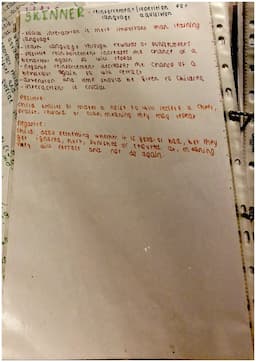 SKINNER - reinforcement/repetition for
language acquisition
- social interaction is more important than training
language
- learn language through rewards or punishment
- positive reinforcement increases the chance of a
behaviour again so will repeat
- negative reinforcement decreases the chance of a
behaviour again so will retract
- attention and time should be given to children
- interaction is crucial
Positive:
child smiles or makes a noise so will receive a
praise, reward or meaning they may repeat
Negative:
child does something whether it is good or bad, but they
get ignored, hurt, punished or meaning
they will retract and not do again.